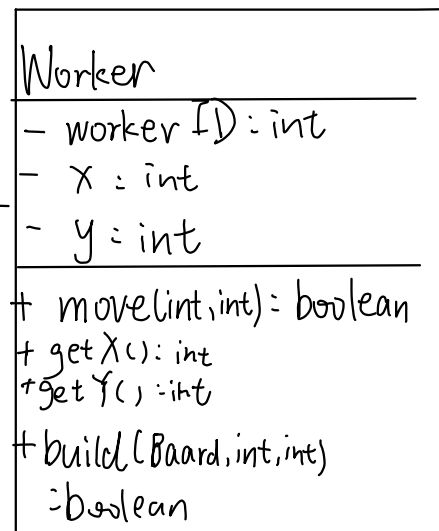 Worker
- worker ID : int
- X : int
- y : int
+ move(int, int) : boolean
+ getX() : int
+ getY() : int
+ build(Baard, int, int)
: boolean